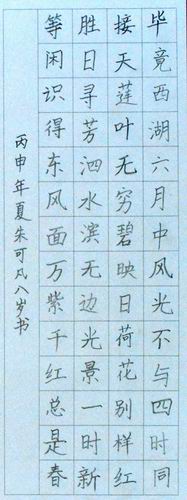 毕竟西湖六月中风光不与四时同
接天莲叶无穷碧映日荷花别样红
胜日寻芳泗水滨无边光景一时新
等闲识得东风面万紫千红总是春
丙申年夏朱可凡八岁书